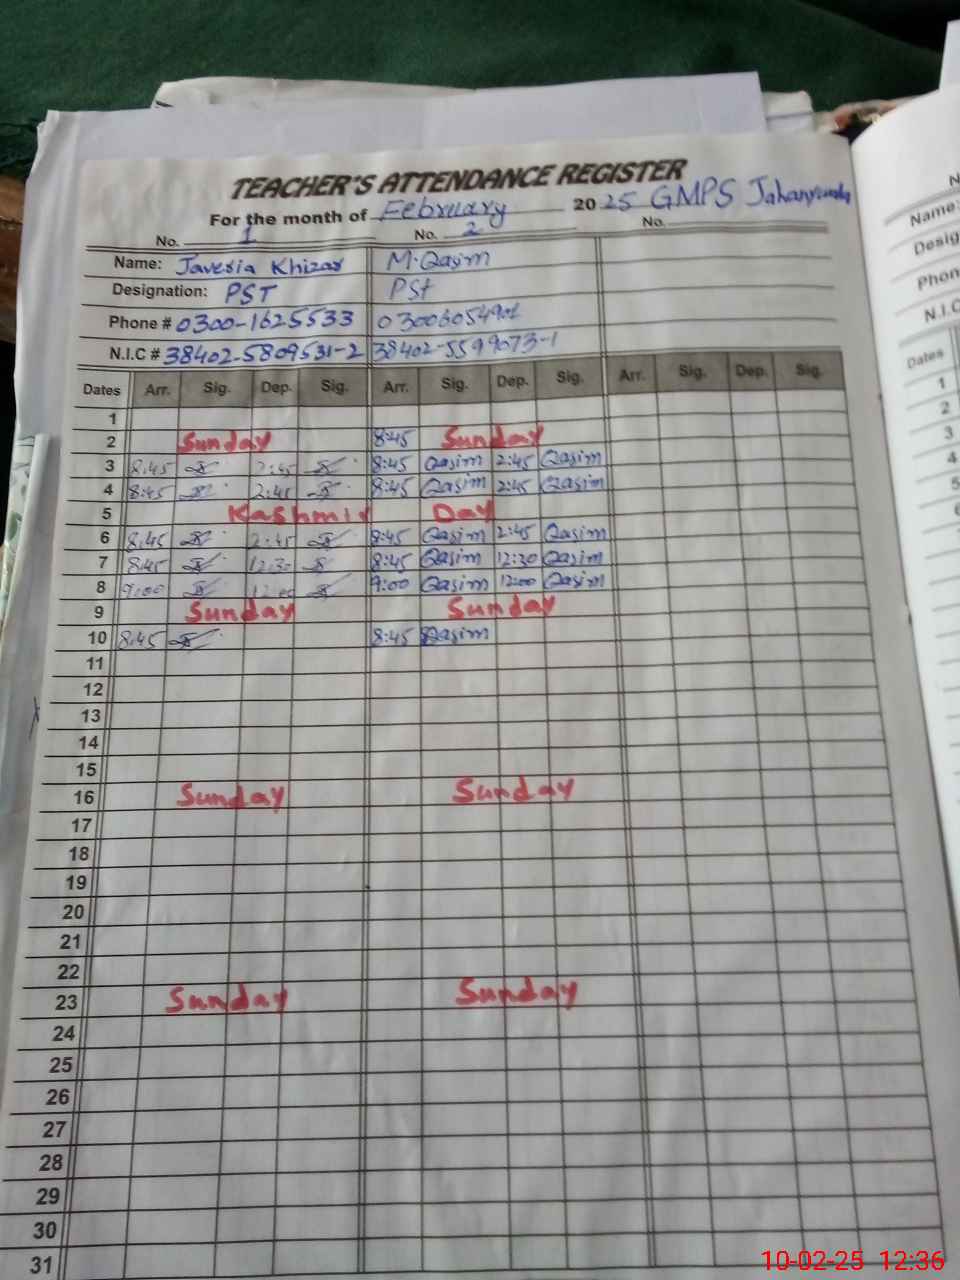 TEACHER'S ATTENDANCE REGISTER
For the month of February 2025 GMPS
No. 1 No. 2 No.
Name: Javeria Khizar M. Qasim
Designation: PST PSt
Phone # 0300-1625533
N.I.C # 38402-5809531-2 38402-5599073-1
Dates Arr. Sig. Dep. Sig. Arr. Sig. Dep. Sig. Arr. Sig. Dep. Sig.
1
2 Sunday 8:45 Sunday
3 8:45 2:45 8:45 Qasim 2:45 Qasim
4 8:45 2:45 8:45 Qasim 2:45 Qasim
5 Kashmir Day
6 8:45 2:45 8:45 Qasim 2:45 Qasim
7 8:45 12:30 8:45 Qasim 12:30 Qasim
8 9:00 12:00 9:00 Qasim 12:00 Qasim
9 Sunday Sunday
10 8:45 8:45 Qasim
11
12
13
14
15
16 Sunday Sunday
17
18
19
20
21
22
23 Sunday Sunday
24
25
26
27
28
29
30
31
Name:
Desig
Phon
N.I.C
Dates
1
2
3
4
5
6
10-02-25 12:36